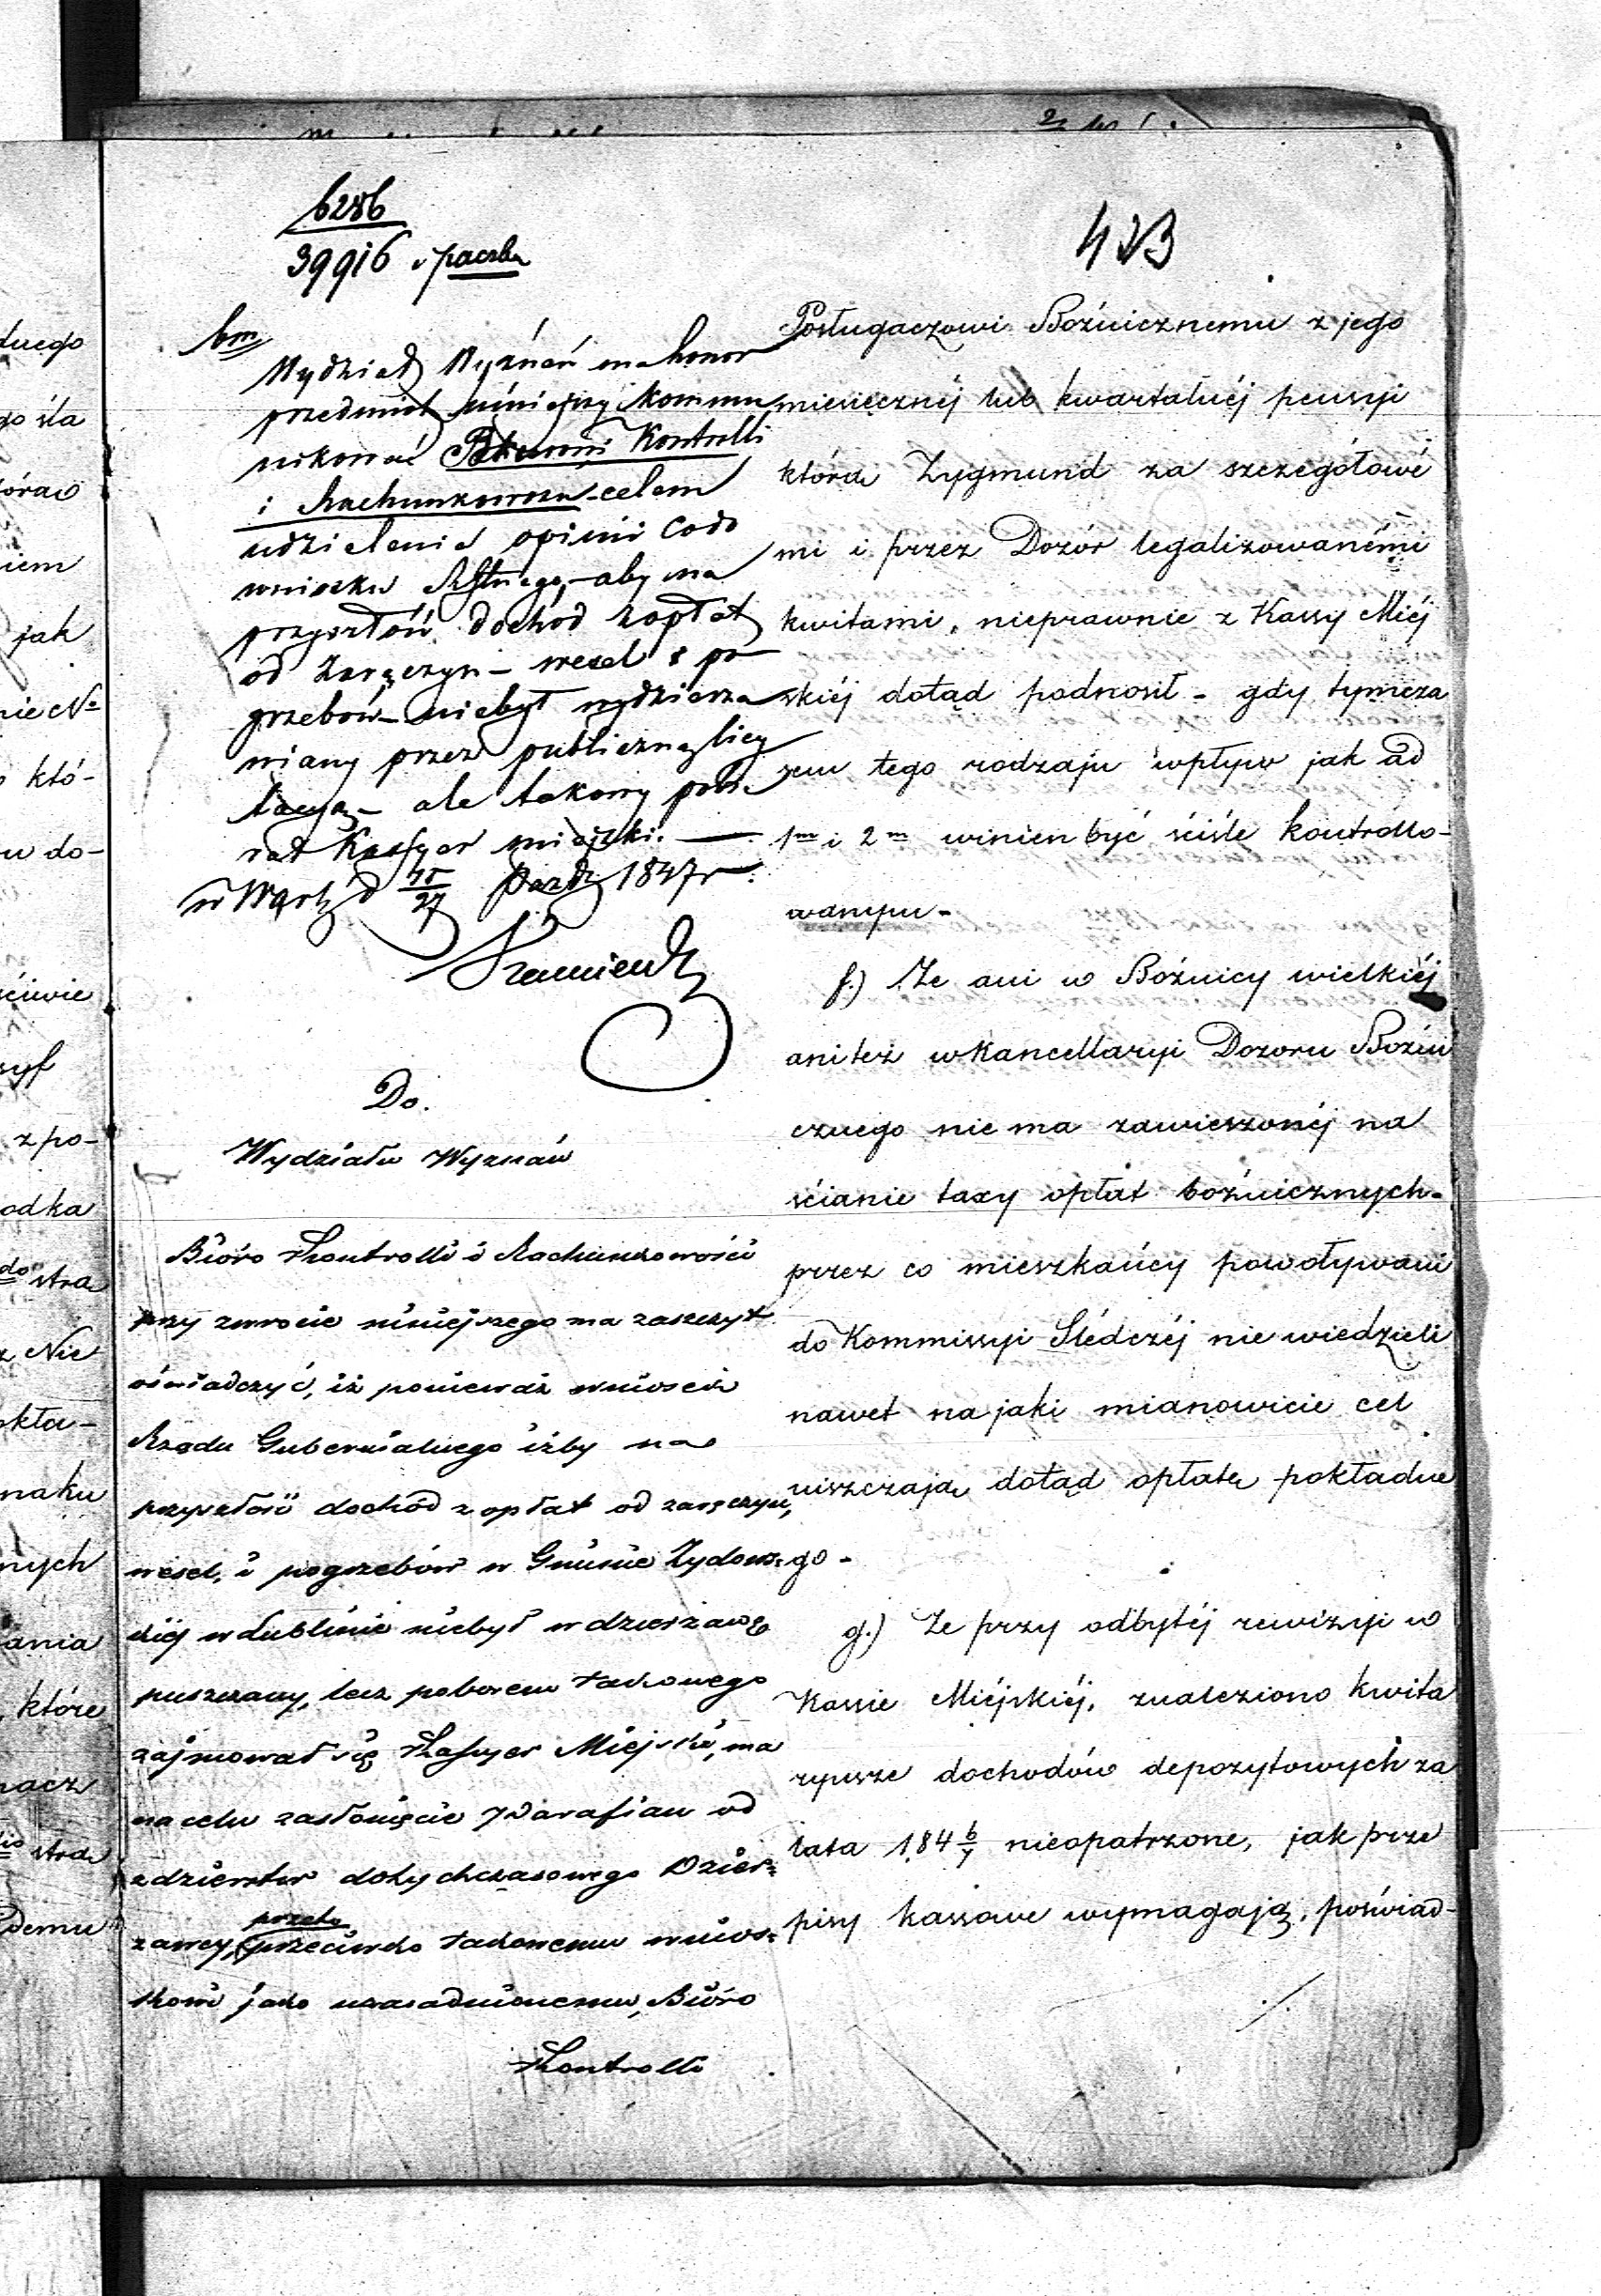 6286
39916 i paczka
423
bm
Wydział Wyznań ma honor
przedmiot niniejszy kommu
nikować Biurowi Kontrolli
i Rachunkowości celem
udzielenia opinii co do
wniosku aby na
przyszłość dochód z opłat
od zaręczyn – wesel i po
grzebów – niebył wydzierża
wiany przez publiczną licy
tacyą – ale takowy pobie
rał Kassyer miejski. —
w Warsz d 15/27 Paźdz 1847 r.
Do.
Wydziału Wyznań
Bióro Kontrolli i Rachunkowości
przy zwrocie niniejszego ma zaszczyt
oświadczyć, iż ponieważ wniosek
Rządu Gubernialnego iżby na
przyszłość dochód z opłat od zaręczyn,
wesel, i pogrzebów w Gminie Żydows=
kiéj w Lublinie niebył w dzierżawę
puszczany, lecz poborem takowego
zajmował się Kassyer Miejski, ma
na celu zasłonięcie Parafian od
zdzierstw dotychczasowego Dzier=
przeto
żawcy, przeciwko takowemu wnios=
kowi jako uzasadnionemu, Bióro
Kontrolli
Posługaczowi Bóźnicznemu z jego
miesięcznéj lub kwartalnéj pensyi
którą Zygmund za szczegółowé
mi i przez Dozór legalizowanémi
kwitami, nieprawnie z Kassy Miéj
skiéj dotąd podnosił – gdy tymcza
sem tego rodzaju wpływ jak ad
1m i 2m winien być ściśle kontrollo-
wanym –
f.) Że ani w Bóźnicy wielkiéj
ani też w Kancellaryi Dozoru Bóźni
cznego nie ma zawieszonéj na
ścianie taxy opłat bóźnicznych –
przez co mieszkańcy powoływani
do Kommissyi Śledczéj nie wiedzieli
nawet na jaki mianowicie cel
uiszczają dotąd opłatę pokładne
go –
g.) Że przy odbytéj rewizyi w
Kassie Miéjskiéj, znaleziono kwita
ryusze dochodów depozytowych za
lata 184 6/7 nieopatrzone, jak prze
pisy kassowe wymagają, poświad-
./.